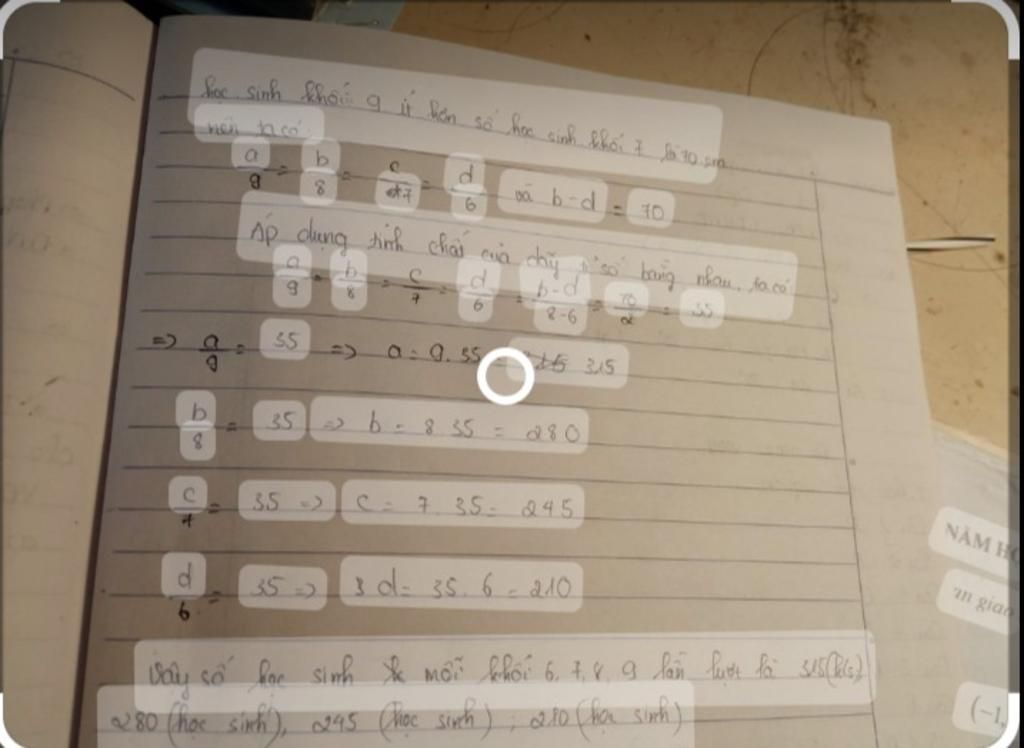 học sinh khối 9 ít hơn số học sinh khối 7 là 70 em
nên ta có:
a/9 = b/8 = c/7 = d/6 và b-d = 70
Áp dụng tính chất của dãy tỉ số bằng nhau, ta có
a/9 = b/8 = c/7 = d/6 = b-d/8-6 = 70/2 = 35
=> a/9 = 35 => a = 9.35 = 315
b/8 = 35 => b = 8.35 = 280
c/7 = 35 => c = 7.35 = 245
d/6 = 35 => d = 35.6 = 210
Vậy số học sinh mỗi khối 6, 7, 8, 9 lần lượt là 315 (h/s)
280 (học sinh), 245 (học sinh); 210 (học sinh)
NĂM
giao
(-1,